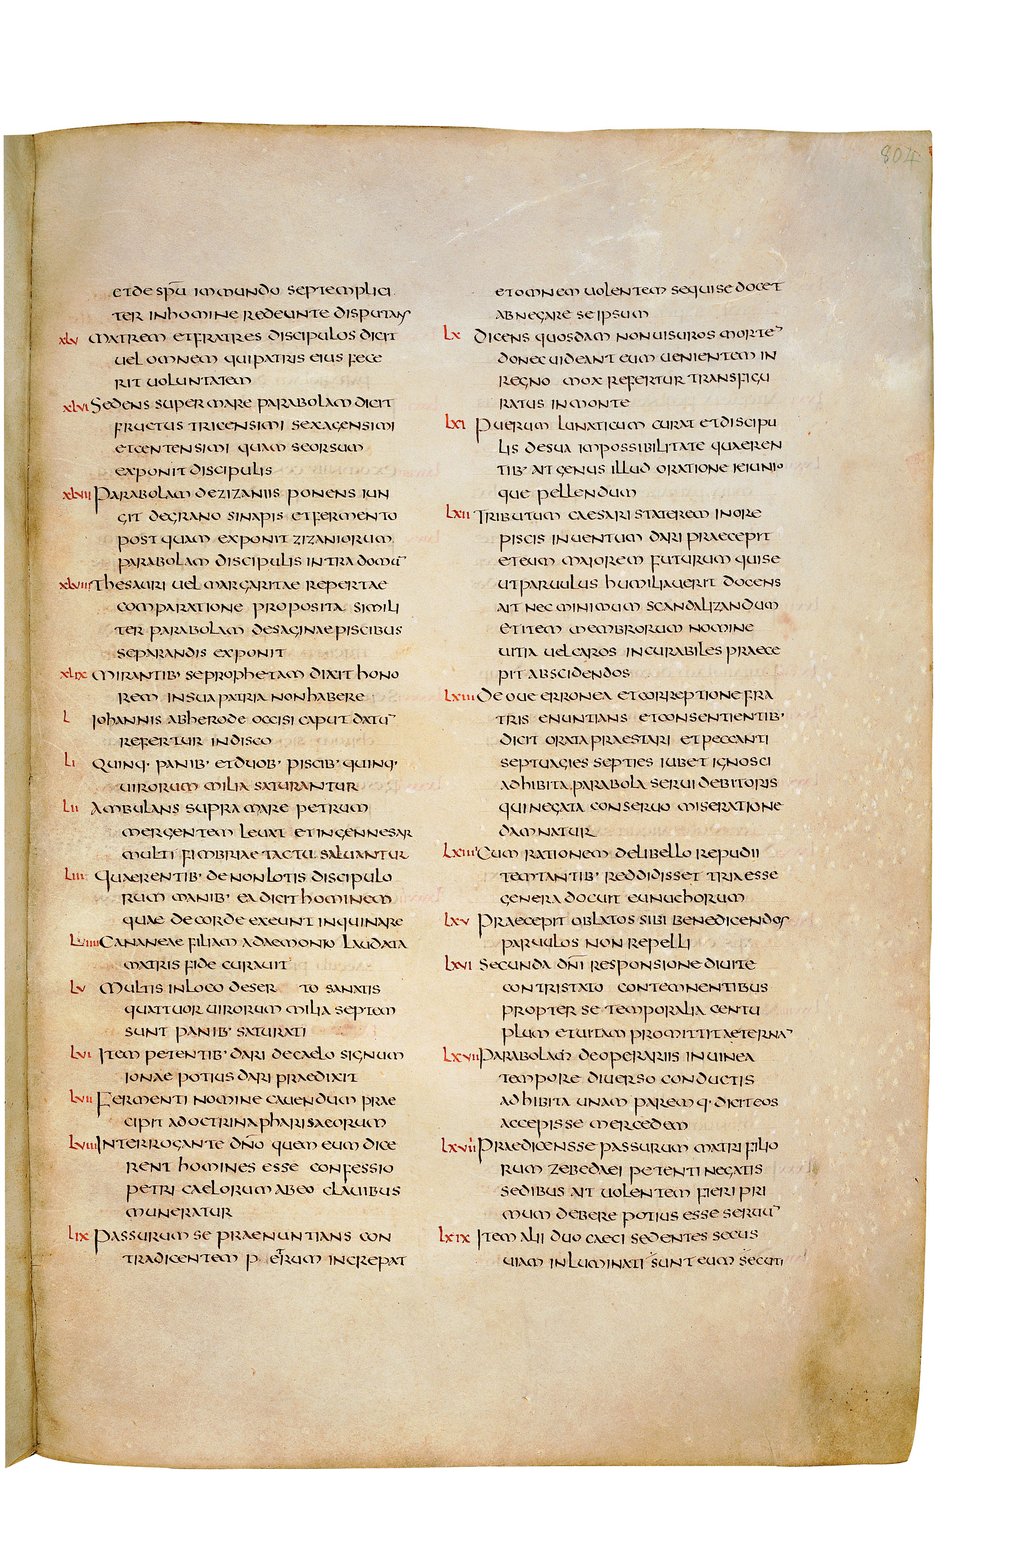 804
et de spu inmundo septemplici
ter in homine redeunte disputans
xlv matrem et fratres discipulos dicit
uel omnem qui patris eius fece
rit uoluntatem
xlvi Sedens super mare parabolam dicit
fructus tricensimi sexagensimi
et centensimi quam seorsum
exponit discipulis
xlvii Parabolam de zizaniis ponens iun
git de grano sinapis et fermento
post quam exponit zizaniorum
parabolam discipulis intra domū
xlviii Thesauri uel margaritae repertae
comparatione proposita simili
ter parabolam de sagina e piscibus
separandis exponit
xlix mirantib' se prophetam dixit hono
rem in sua patria non habere
L Johannis ab herode occisi caput datū
refertur in disco
Li quinq· panib' et duob' piscib' quinq·
uirorum milia saturantur
Lii Ambulans supra mare petrum
mergentem leuat et in gennesar
multi fimbriae tactu saluantur
Liii Quaerentib' de non lotis discipulo
rum manib' ea dicit hominem
quae de corde exeunt inquinare
Liiii Cananeae filiam a daemonio laudata
matris fide curauit
Lv Multis in loco deser to sanatis
quattuor uirorum milia septem
sunt panib' saturati
Lvi Item petentib' dari de caelo signum
ionae potius dari praedixit
Lvii Fermenti nomine cauendum prae
cipit a doctrina pharisaeorum
Lviii Interrogante dno quem eum dice
rent homines esse confessio
petri caelorum ab eo clauibus
muneratur
Lix Passurum se praenuntians con
tradicentem p etrum increpat
et omnem uolentem sequi se docet
abnegare se ipsum
Lx Dicens quosdam non uisuros mortē
donec uideant eum uenientem in
regno mox refertur transfigu
ratus in monte
Lxi Puerum lunaticum curat et discipu
lis de sua impossibilitate quaeren
tib' ait genus illud oratione ieiunio
que pellendum
Lxii Tributum caesari staterem in ore
piscis inuentum dari praecepit
et eum maiorem futurum qui se
ut paruulus humiliauerit docens
ait nec minimum scandalizandum
et item membrorum nomine
uitia uel caros incurabiles praece
pit abscidendos
Lxiii De oue erronea et correptione fra
tris enuntians et consentientib'
dicit orata praestari et peccanti
septuagies septies iubet ignosci
adhibita parabola serui debitoris
qui negata conseruo miseratione
damnatur
Lxiiii Cum rationem de libello repudii
temtantib' reddidisset tria esse
genera docuit eunuchorum
Lxv Praecepit oblatos sibi benedicendos
paruulos non repelli
Lxvi Secunda dni responsione diuite
contristato contemnentibus
propter se temporalia centu
plum et uitam promittit aeternā
Lxvii Parabolam de operariis in uinea
tempore diuerso conductis
adhibita unam paremq· dicit eos
accepisse mercedem
Lxviii Praedicensse passurum matri filio
rum zebedaei petenti negatis
sedibus ait uolentem fieri pri
mum debere potius esse seruū
Lxix Item alii duo caeci sedentes secus
uiam inluminati sunt eum secuti